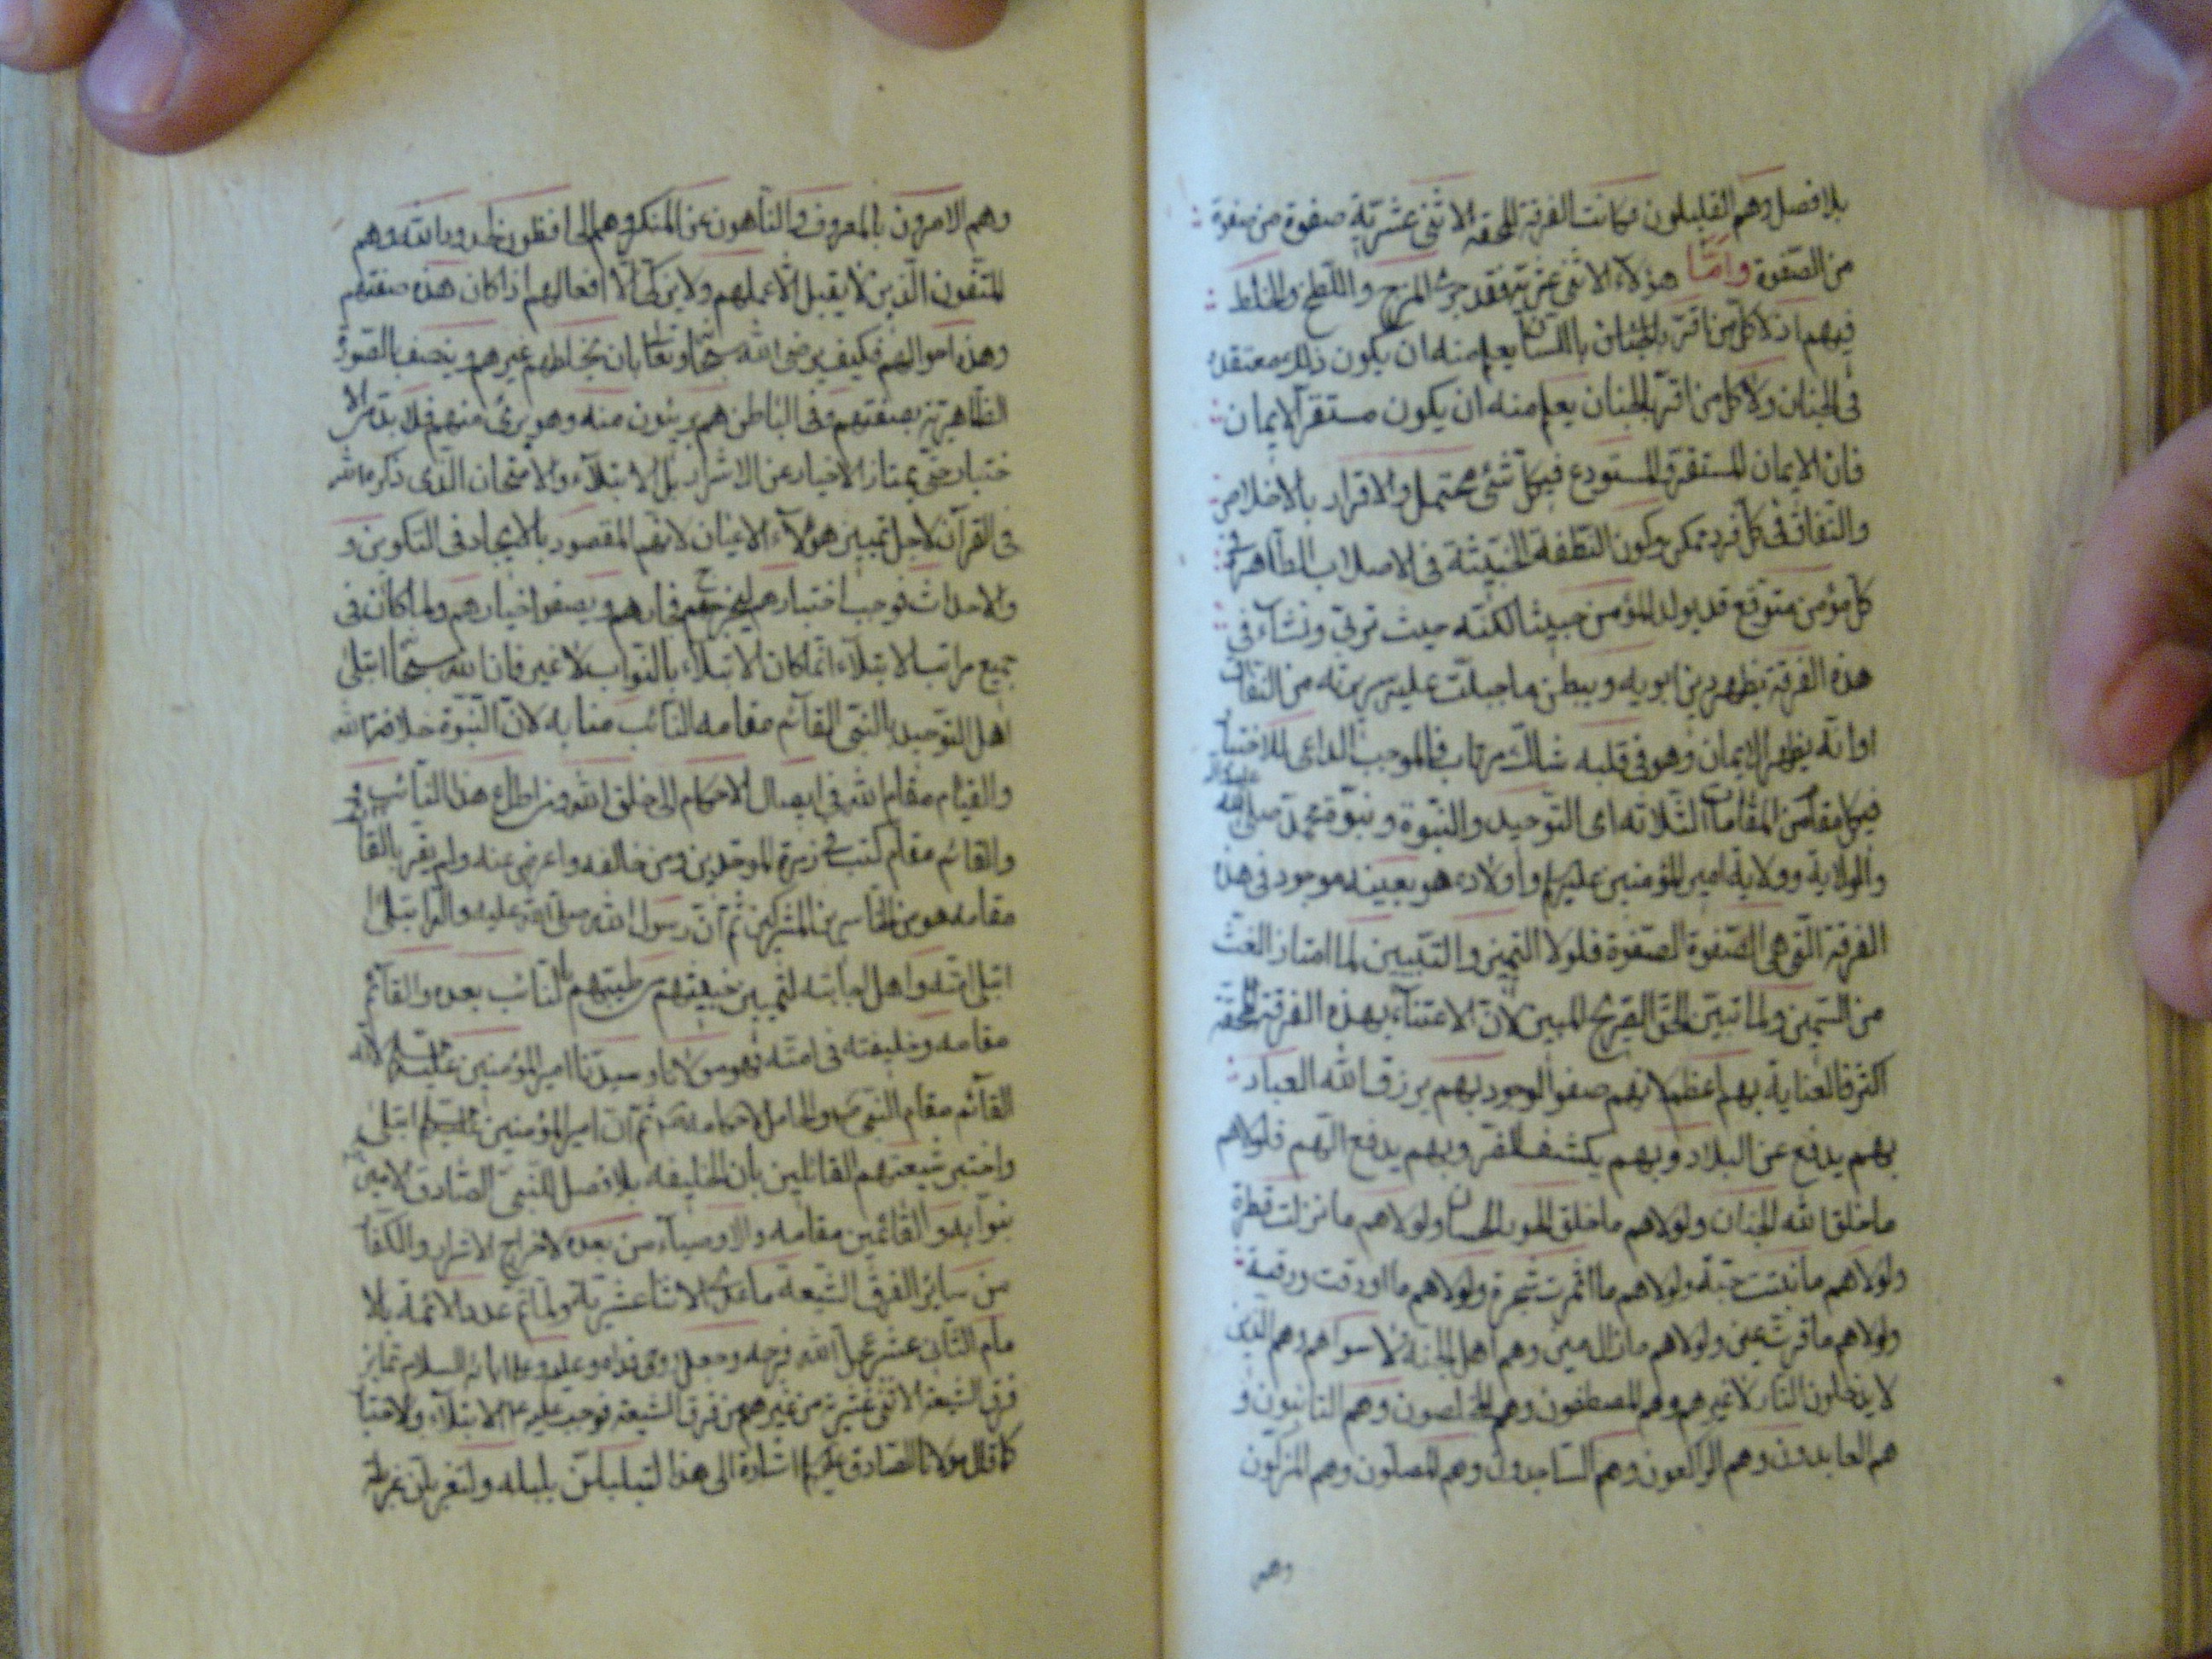 بلا فصل وهم القليلون فكانت الفرقة المحقه الاثنى عشرية صفوة من صفوة
من الصفوة وامّا هؤلاء الاثنى عشرية فقد جرى المزج واللطخ والخلط
فيهم اذ لا كل من اقرّ باللسان يعلم منه ان يكون ذلك معتقده
فى الجنان ولا كل من اقرّ بالجنان يعلم منه ان يكون مستقر الايمان
فان الايمان المستقر والمستودع فى كلّ شئ محتمل والاقرار بالاخلاص
والنّفاق فى كل فرد ممكن وكون النّطفة الخبيثة فى الاصلاب الطّاهرة فى
كل مؤمن متوقع قد يولد المؤمن خبيثا لكنّه حيث تربّى ونشأ فى
هذه الفرقة يظهر دين ابويه ويبطن ما جبلت عليه سريرته من النفاق
او انّه يظهر الايمان وهو فى قلبه شاكّ مرتاب فالموجب الداعى للاختبار
فى كل مقام من المقامات الثّلاثه اى التّوحيد والنّبوة ونبوّة محمد صلى الله عليه واله
والولاية وولاية امير المؤمنين عليه السلام واولاده هو بعينه موجود فى هذه
الفرقة التى هى الصّفوة الصّفوة فلولا التميز والتّبيين لما امتاز الغثّ
من السّمين ولما تبيّن الحق الصّريح المبين لانّ الاعتناء بهذه الفرقة المحقّه
اكثر فالعناية بهم اعظم لانهم صفو الوجود بهم يرزق الله العباد
بهم يدفع عن البلاد وبهم يكشف الضّر وبهم يدفع الهم فلولاهم
ما خلق الله الجنان ولولاهم ما خلق الحور الحسان ولولاهم ما نزلت قطرة
ولولاهم ما نبتت حبّة ولولاهم ما اثمرت شجرة ولولاهم ما اورقت ورقية
ولولاهم ما قرت عين ولولاهم ما زال مين وهم اهل الجنة لا سواهم وهم الذين
لا يدخلون النّار لا غيرهم وهم المصطفون وهم المخلصون وهم التائبون و
هم العابدون وهم الراكعون وهم السّاجدون وهم المصلّون وهم المزكّون
وهم
وهم الامرون بالمعروف والنّاهون عن المنكر وهم الحافظون لحدود الله وهم
المتّقون الّذين لا يقبل الّا عملهم ولا يزكّى الّا افعالهم اذا كان هذه صفتهم
وهذه احوالهم فكيف يرضى الله سبحانه وتعالى بان يخالطهم غيرهم ويتصف بالصّورة
الظّاهرية بصفتهم وفى الباطن هم بريئون منه وهو برئ منهم فلا بدّ من الا
ختبار حتى يمتاز الاخيار عن الاشرار بل الابتلاء والامتحان الّذى ذكره الله
فى القرآن لاجل تمييز هؤلاء الاعيان لانهم المقصود بالايجاد فى التكوين و
والاحداث فوجب اختبارهم ليخرج فجارهم ويصفوا خيارهم ولما كان فى
جميع مراتب الابتلاء انما كان الابتلاء بالنّواب لا غير فان الله سبحانه ابتلى
اهل التّوحيد بالنّبى القآئم مقامه النائب منابه لانّ النّبوّة خلافة الله
والقيام مقام الله فى ايصال الاحكام الى خلق الله فمن اطاع هذا النّائب و
والقائم مقام كتب فى زمرة الموحّدين ومن خالفه واعرض عنه ولم يقر بالقا
مقامه هو من الخاسرين المشركين ثم انّ رسول الله صلى الله عليه واله ابتلى
ابتلى امّته واهل اجابته لتمييز خبيثهم من طيبهم بالنّائب بعده والقآئم
مقامه وخليفته فى امّته فهو مولانا وسيدنا امير المؤمنين عليه السلام لانه
القآئم مقام النّبى ص والحامل لاحكامه ثمّ انّ امير المؤمنين عليه السلام ابتلى
واختبر شيعتهم القائلين بان الخليفه بلا فصل للنّبى الصّادق الامين
بنوابه والقائمين مقامه والاوصياء من بعده لاخراج الاشرار والكفّا
من ساير الفرق الشّيعة ما عدى الاثنا عشرية ولما تمّ عدد الائمة بالا
مام الثّانى عشر عجل الله فرجه وجعلنى فداه وعليه وعلى ابائه السلام تمايز
فرق الشّيعة الاثنى عشرية من غيرهم من فرق الشيعة فوجب عليه ع الابتلاء والاختبا
كما قال مولانا الصادق عليه السلام اشارة الى هذا لتبلبلنّ بلبله ولتغربلنّ غربلة